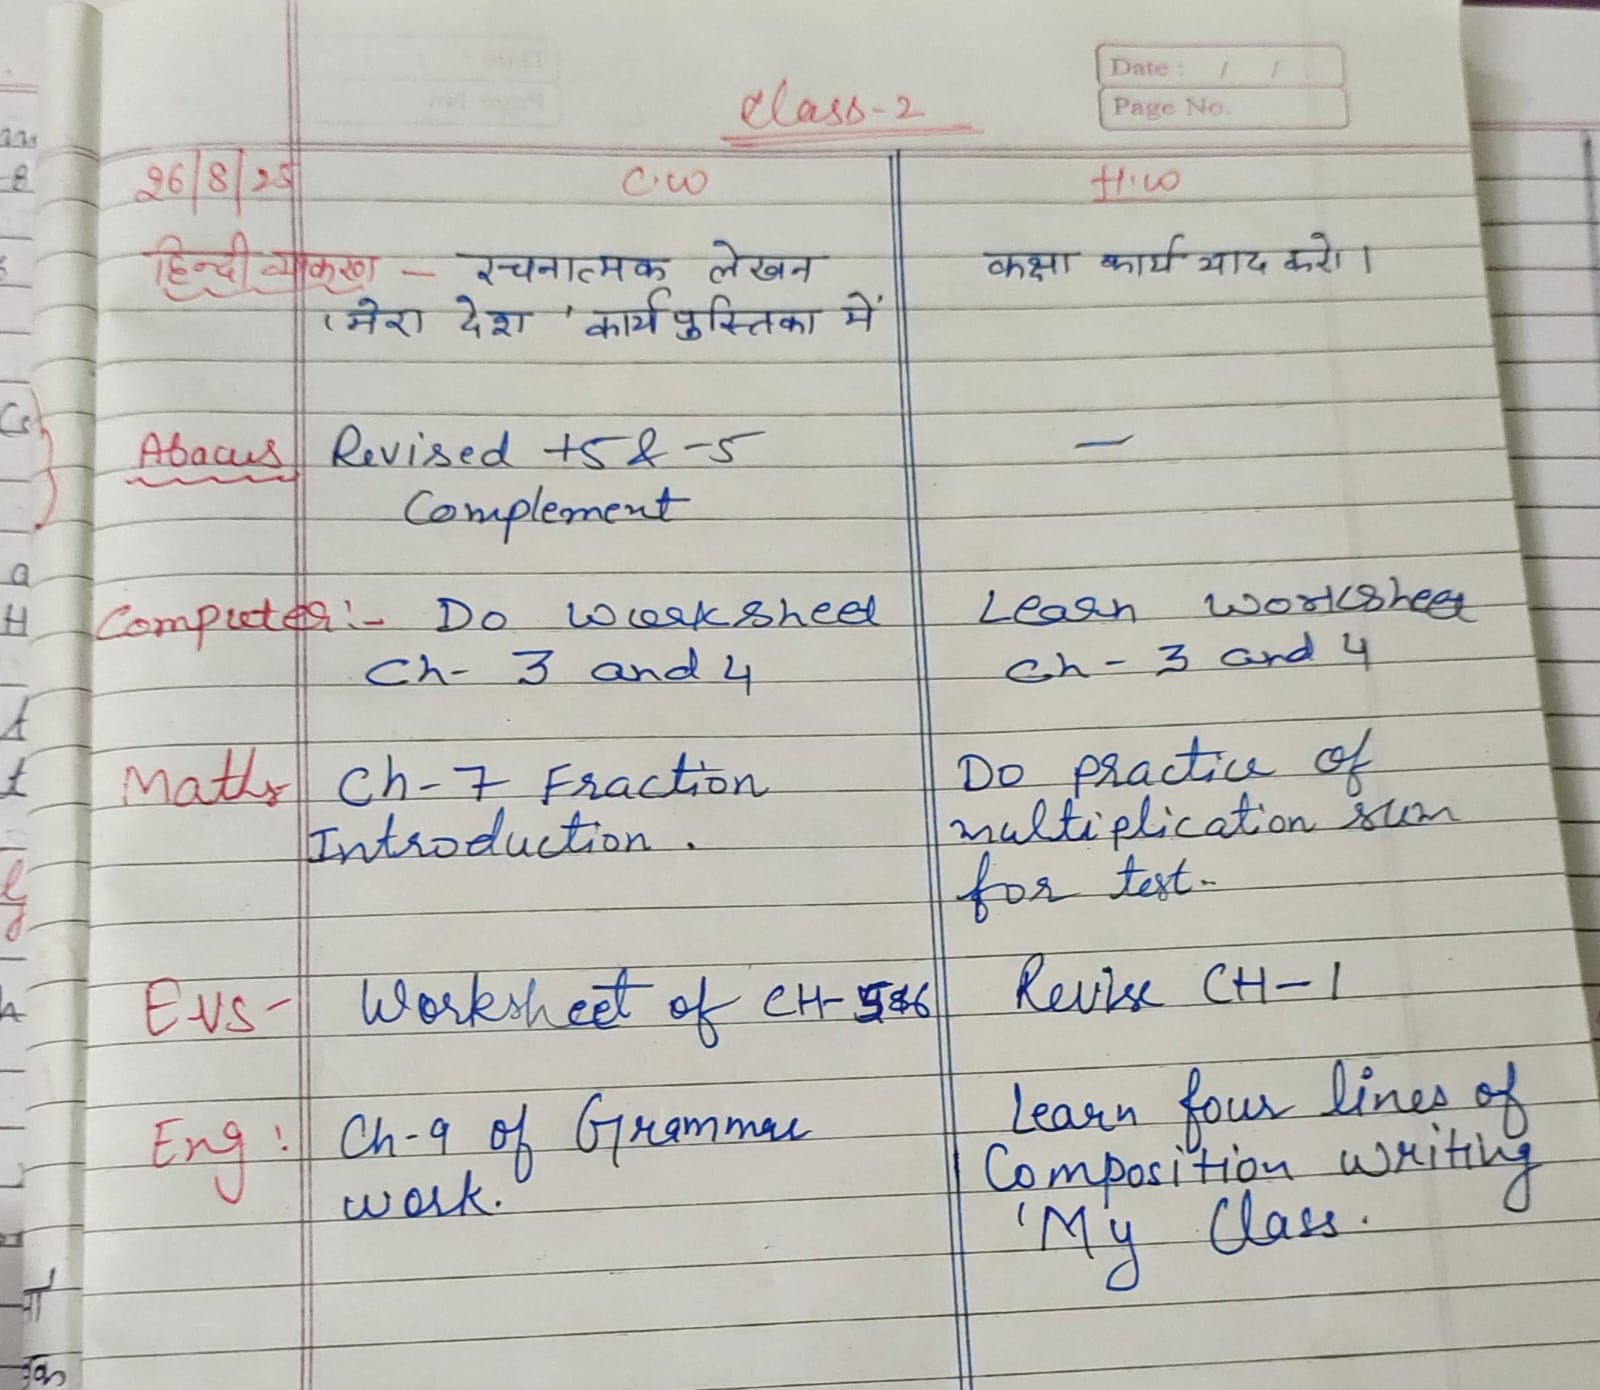 Date : / /
Page No.
Class-2
26/8/25 C.W H.W
हिन्दी व्याकरण – रचनात्मक लेखन कक्षा कार्य याद करो।
'मेरा देश' कार्य पुस्तिका में
Abacus Revised +5 & -5 —
Complement
Computer :- Do worksheet Learn worksheet
Ch- 3 and 4 Ch - 3 and 4
Maths Ch-7 Fraction Do practice of
Introduction. multiplication sum
for test.
EVS- Worksheet of CH-5&6 Revise CH-1
Eng: Ch-9 of Grammar Learn four lines of
work. Composition writing
'My Class.